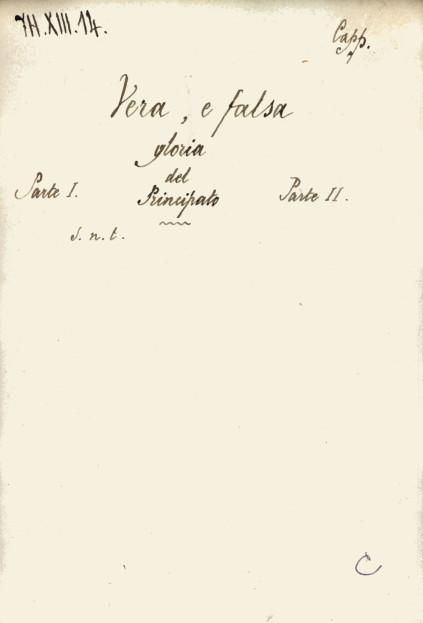 7H.XIII.14.
Capp.
Vera, e falsa
gloria
del
Parte I. Principato Parte II.
s. n. t.
C